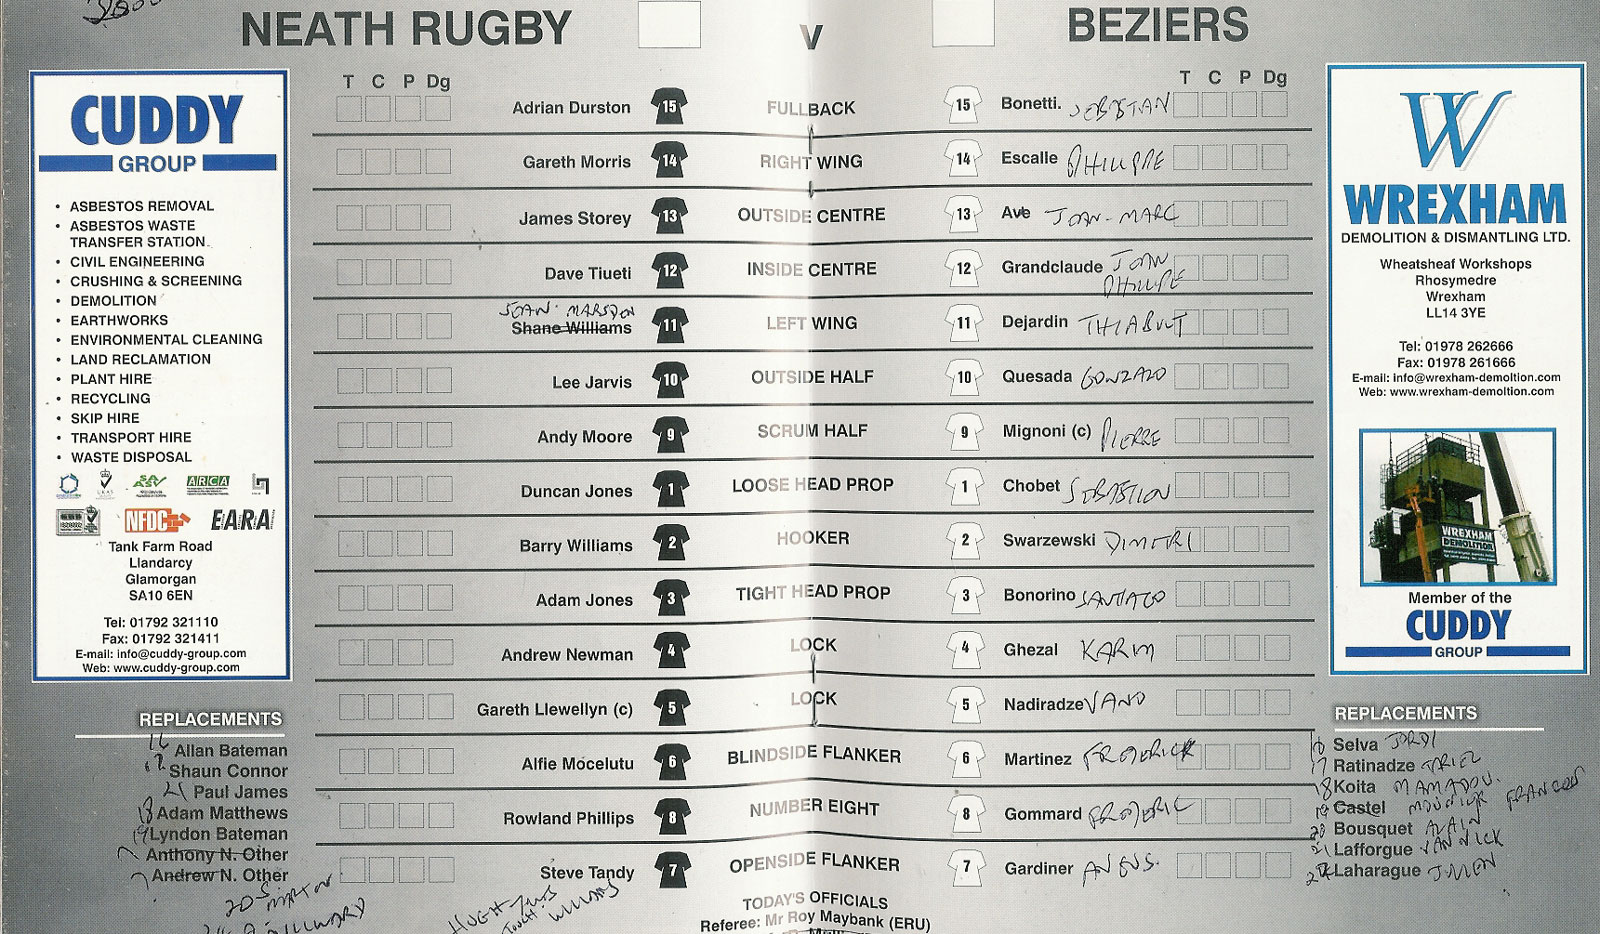 NEATH RUGBY v BEZIERS
CUDDY
GROUP
• ASBESTOS REMOVAL
• ASBESTOS WASTE
TRANSFER STATION
• CIVIL ENGINEERING
• CRUSHING & SCREENING
• DEMOLITION
• EARTHWORKS
• ENVIRONMENTAL CLEANING
• LAND RECLAMATION
• PLANT HIRE
• RECYCLING
• SKIP HIRE
• TRANSPORT HIRE
• WASTE DISPOSAL
ARCA
NFDC EARA
Tank Farm Road
Llandarcy
Glamorgan
SA10 6EN
Tel: 01792 321110
Fax: 01792 321411
E-mail: info@cuddy-group.com
Web: www.cuddy-group.com
T C P Dg T C P Dg
Adrian Durston 15 FULLBACK 15 Bonetti.
Gareth Morris 14 RIGHT WING 14 Escalle PHILIPPE
James Storey 13 OUTSIDE CENTRE 13 Ave JEAN-MARC
Dave Tiueti 12 INSIDE CENTRE 12 Grandclaude JEAN
PHILIPPE
MARSDEN
Shane Williams 11 LEFT WING 11 Dejardin
Lee Jarvis 10 OUTSIDE HALF 10 Quesada GONZALO
Andy Moore 9 SCRUM HALF 9 Mignoni (c) PIERRE
Duncan Jones 1 LOOSE HEAD PROP 1 Chobet
Barry Williams 2 HOOKER 2 Swarzewski DIMITRI
Adam Jones 3 TIGHT HEAD PROP 3 Bonorino SANTIAGO
Andrew Newman 4 LOCK 4 Ghezal KARIM
Gareth Llewellyn (c) 5 LOCK 5 Nadiradze VANO
Alfie Mocelutu 6 BLINDSIDE FLANKER 6 Martinez
Rowland Phillips 8 NUMBER EIGHT 8 Gommard
Steve Tandy 7 OPENSIDE FLANKER 7 Gardiner
TODAY'S OFFICIALS
Referee: Mr Roy Maybank (ERU)
REPLACEMENTS
16 Allan Bateman
Shaun Connor
21 Paul James
18 Adam Matthews
19 Lyndon Bateman
Anthony N. Other
Andrew N. Other
20
HUGH
TOUCH: WILLIAMS
W
WREXHAM
DEMOLITION & DISMANTLING LTD.
Wheatsheaf Workshops
Rhosymedre
Wrexham
LL14 3YE
Tel: 01978 262666
Fax: 01978 261666
E-mail: info@wrexham-demoltion.com
Web: www.wrexham-demoltion.com
WREXHAM
DEMOLITION
Member of the
CUDDY
GROUP
REPLACEMENTS
Selva JORDI
17 Ratinadze
18 Koita MAMADOU.
19 Castel
20 Bousquet ALAIN
21 Lafforgue YANNICK
22 Laharague JULIEN